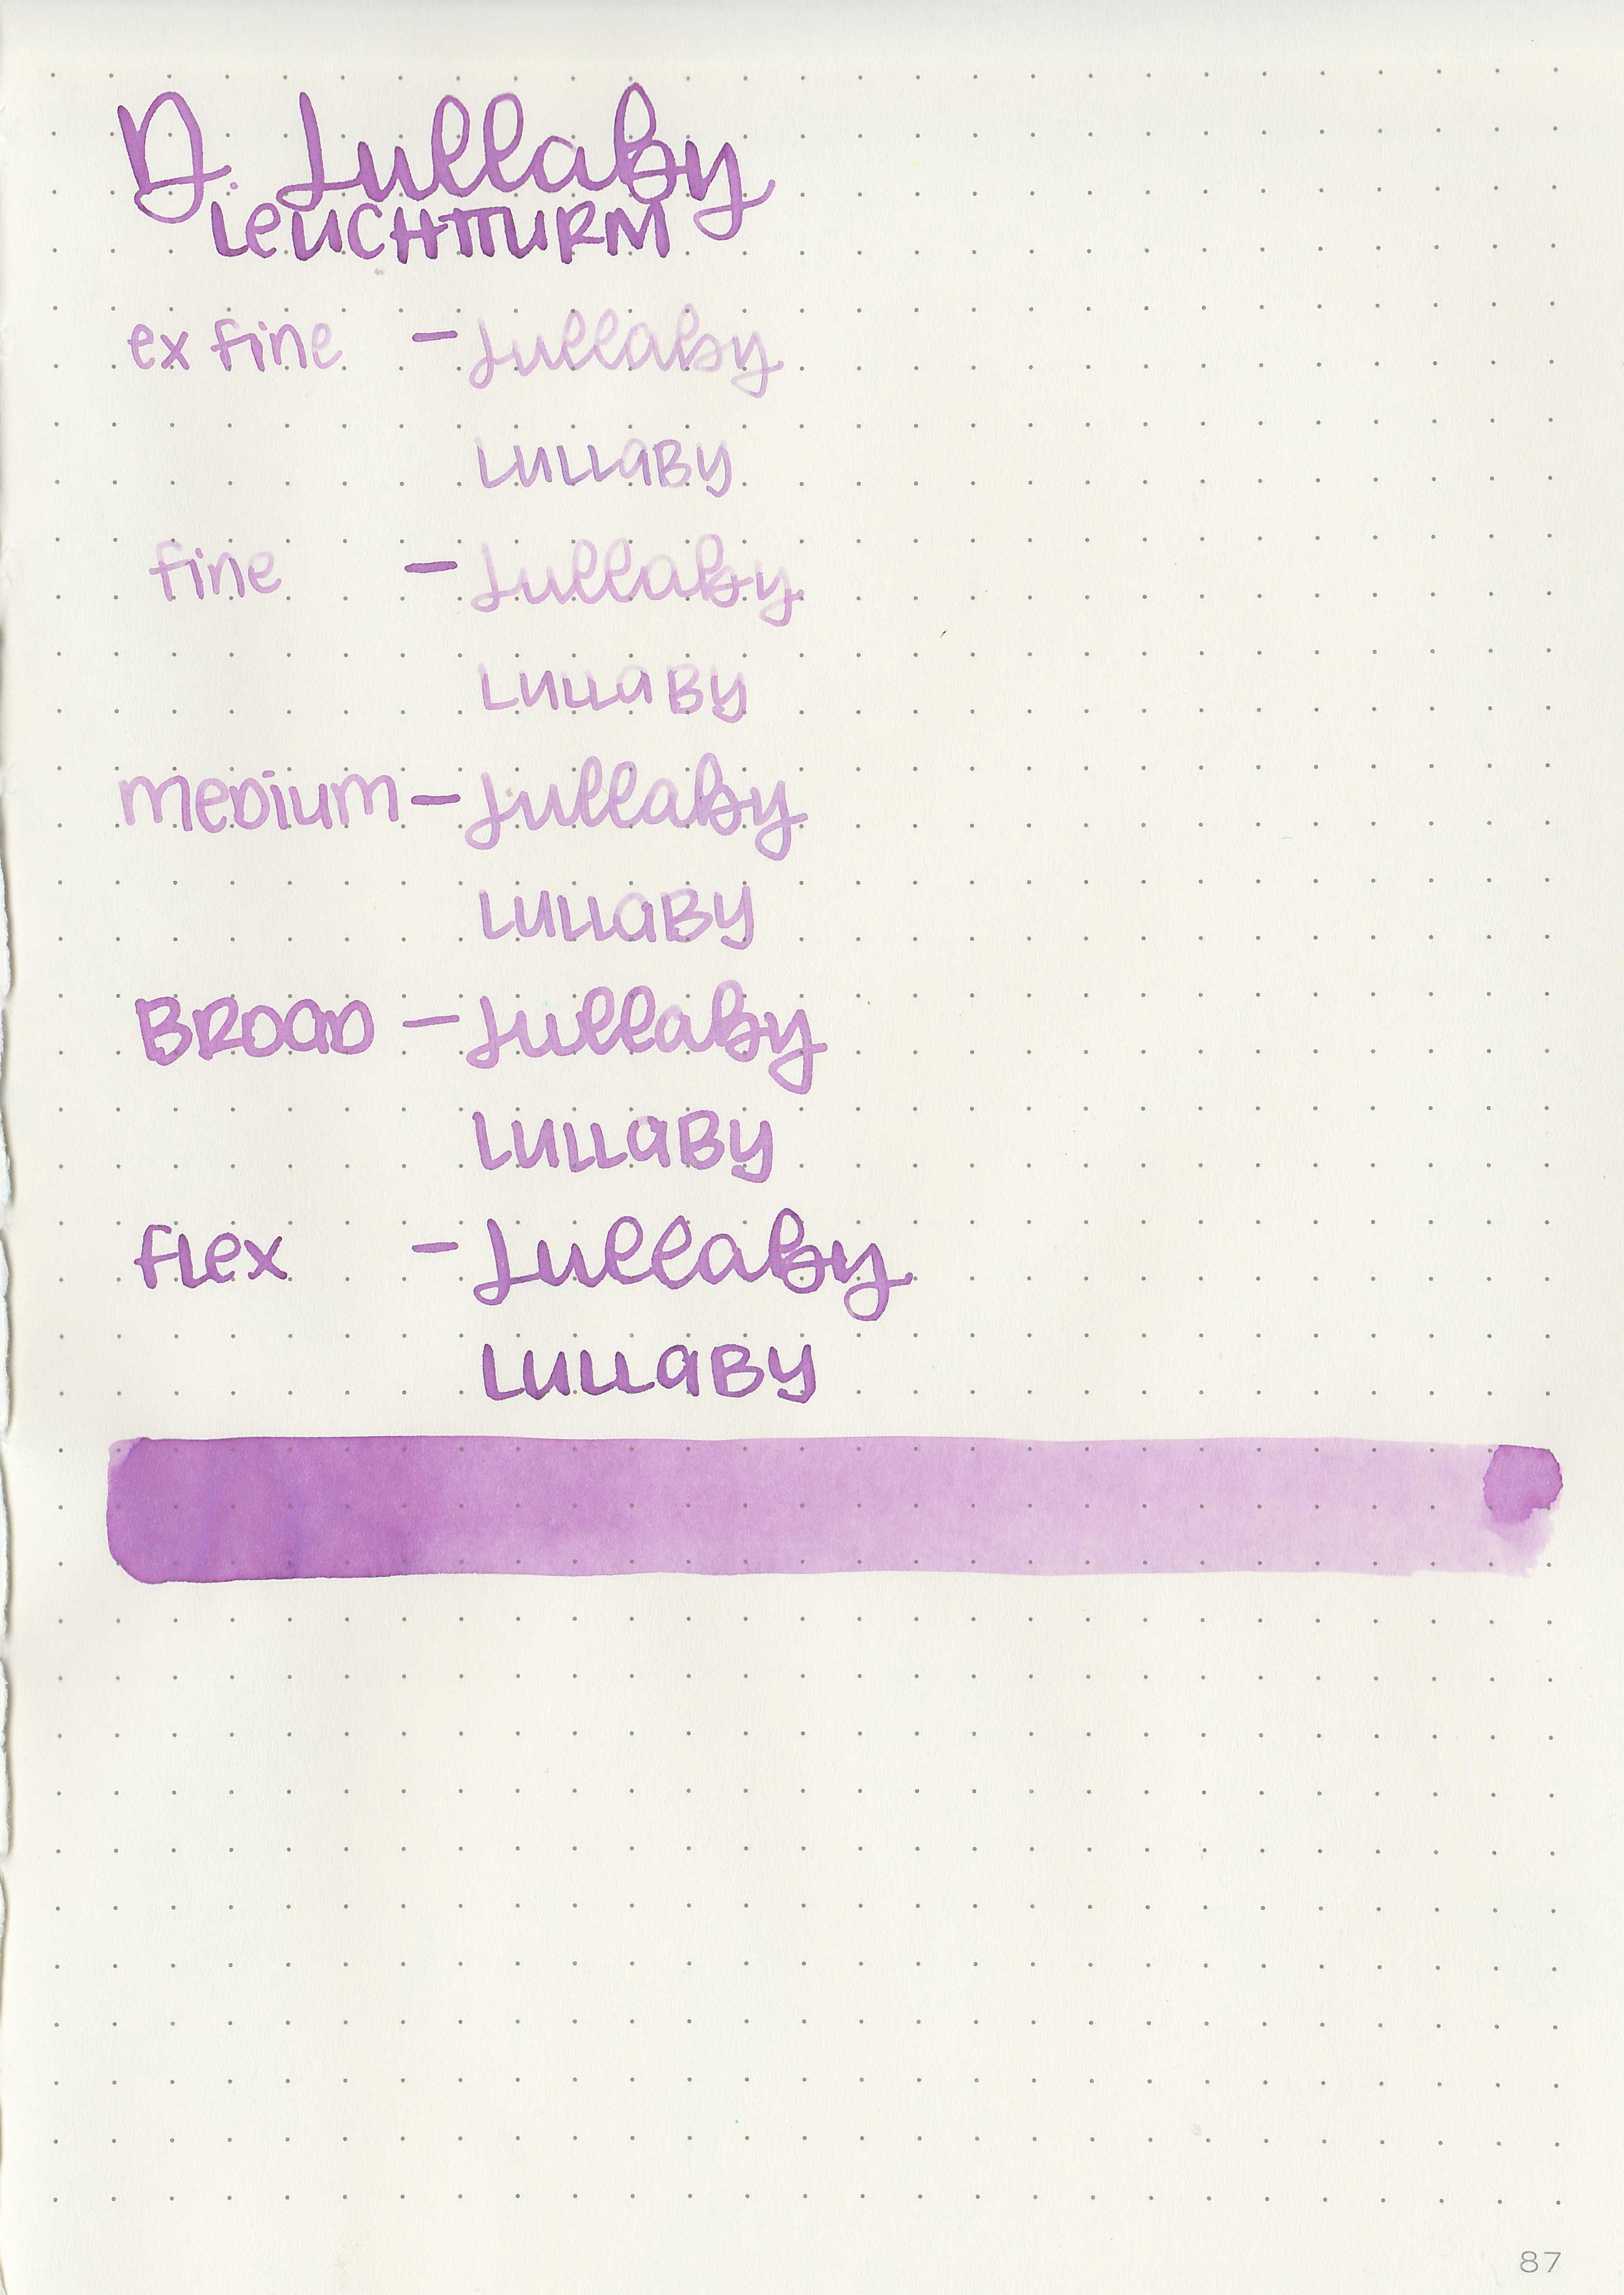 D. Lullaby
LEUCHTTURM
ex fine - Lullaby
LULLABY
fine - Lullaby
LULLABY
MEDIUM - Lullaby
LULLABY
BROAD - Lullaby
LULLABY
flex - Lullaby
LULLABY
87